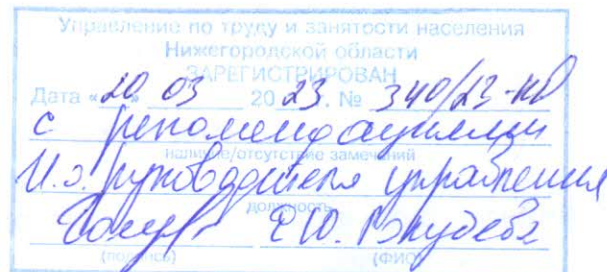 Управление по труду и занятости населения
Нижегородской области
ЗАРЕГИСТРИРОВАН
Дата «20» 03 2023. № 340/23-КД
с рекомендациями
наличие/отсутствие замечаний
И.о. руководителя управления
должность
Е.Ю.
(подпись) (ФИО)